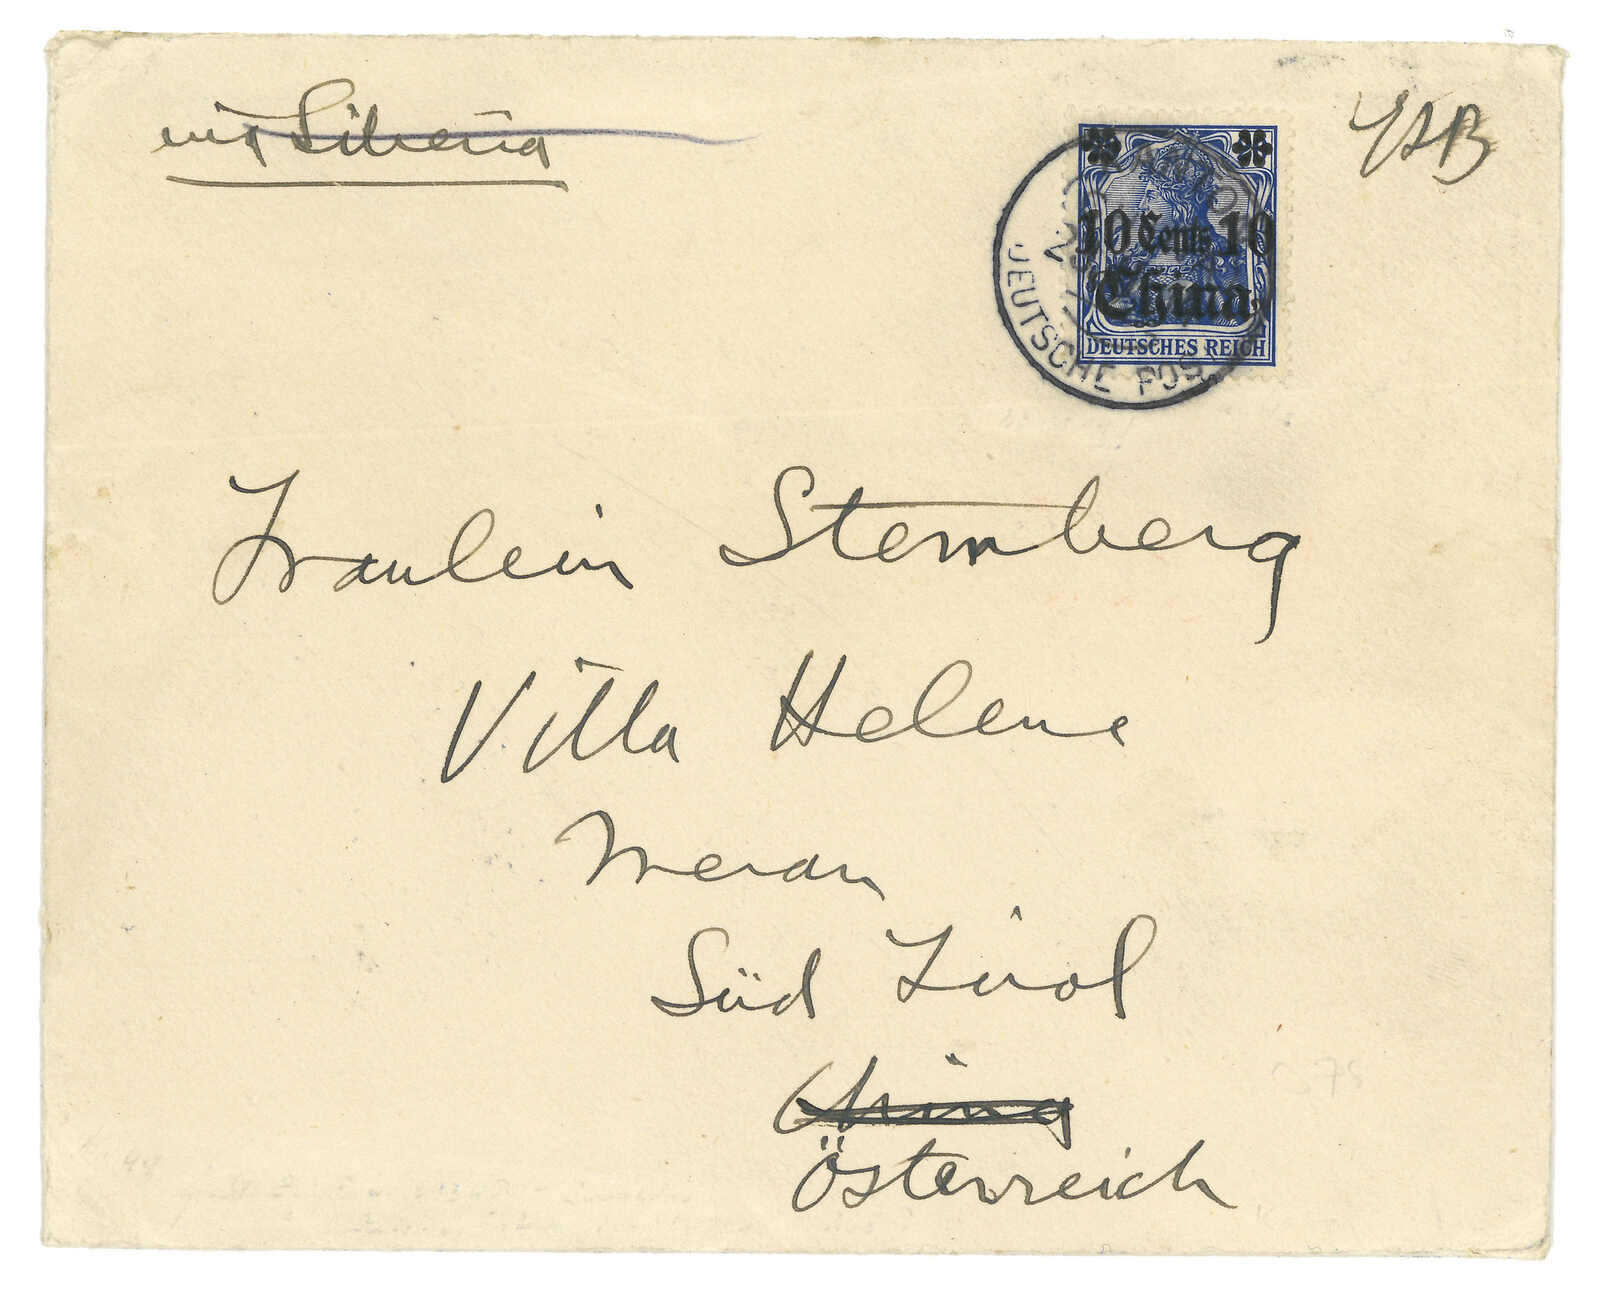 via Siberia
10 Cents 10
China
DEUTSCHES REICH
DEUTSCHE POST
Fräulein Sternberg
Villa Helene
Meran
Süd Tirol
China
Österreich